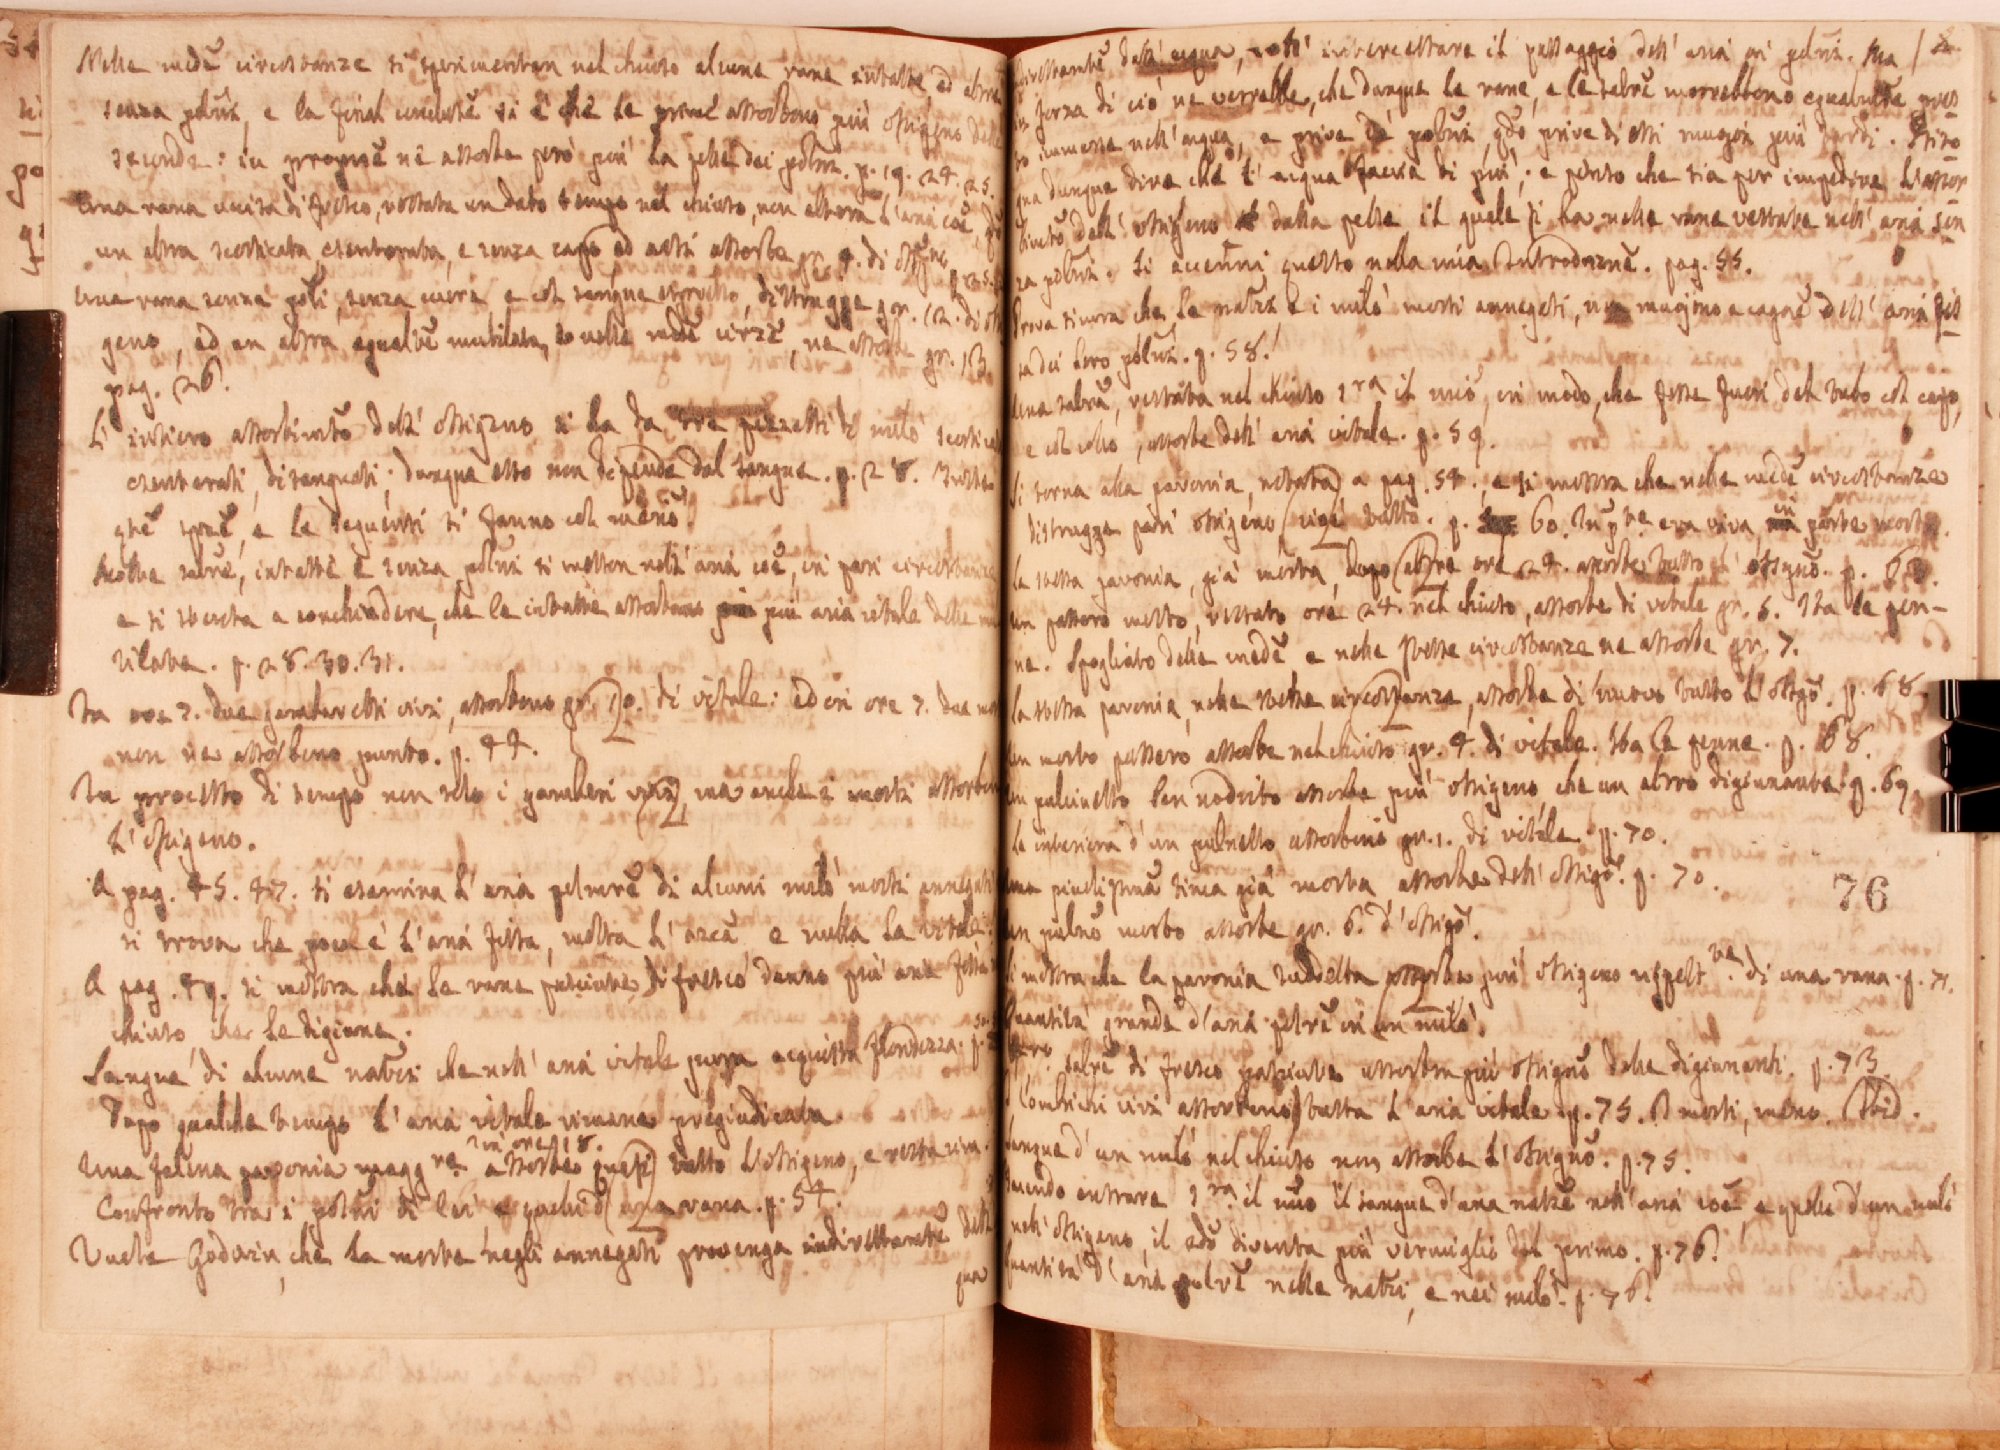 Nelle medē circostanze si sperimentan nel chiuso alcune rane intatte, ed altre
senza polmī, e la final concluse si è che le prime assorbono più ossigeno delle
seconde: in propr̄ne ne assorbe però più la pelle dei polmī. p. 19. 24. 25.
Una rana uccisa di fresco, restata un dato tempo nel chiuso, non altera l'aria coē,
un altra scorticata esenterata, e senza capo ed arti assorbe gr. 4. di ossīgno
Una rana senza poli, senza cuore e col sangue espresso, distrugge gr. 12. di ossi
geno, ed un altra egualtē mutilata, e nelle medē circzē, ne assorbe gr. 13
pag. 26.
L' intiero assorbimtō dell' ossigeno si ha da tre pezzetti di milō scorticati
esenterati, disanguati; dunque esso non dipende dal sangue. p. 28. Tutte
qtē spzē, e le seguenti si fanno col merō.
Molte salrē, intatte e senza polmī si metton nell' aria coē, in pari circostanze
e si scusta a conchiudere, che le intatte assorbono più aria vitale delle mu
tilate. p. 28. 30. 31.
In ore 7. due gambaretti vivi, assorbono gr. 10. di vitale: ed in ore 7. due morti
non ne assorbono punto. p. 44.
In processo di tempo non solo i gamberi vivi, ma anche i morti assorbon
l' ossigeno.
A pag. 45. 47. si esamina l' aria polmrē di alcuni milō morti annegati
si trova che poca è l' aria fissa, molta l' azcā e nulla la vitale.
A pag. 49. si mostra che le rane pasciute di fresco danno più aria fissa
chiuso, che le digiune.
Sangue di alcune natrī che nell' aria vitale pura acquista biondezza. p. 50.
Dopo qualche tempo l' aria vitale rimane pregiudicata.
in ore 18.
Una falena pavonia maggre assorbe quasi tutto l' ossigeno, e resta viva.
Confronto tra i polmi di lei e quelli d' una rana. p. 54.
Vuole Godwin, che la morte negli annegati provenga indirettamtē dall'
qua
direttamtē dall' acqua, coll' intercettare il passaggio dell' aria ai polmī. Ma
in forza di ciò ne verrebbe, che dunque le rane, e le salrē morrebbono egualmtē pres
to immerse nell' acqua, e prive di polmī, qdō prive di essi muojon più tardi. Biso
gna dunque dire che l' acqua faccia di più, e penso che sia per impedire l' assor
bimtō dell' ossigeno dalla pelle il quale si ha nelle rane restate nell' aria sen
za polmī. Si accenni questo nella mia Introduznē. pag. 55.
Prova sicura che le natrī e i milō morti annegati, non muojono a cagnē dell' aria fis
sa dei loro polmī. p. 58.
Una salrā, restata nel chiuso 1ra il mcō, in modo, che fosse fuori del tubo col capo,
e col collo, assorbe dell' aria vitale. p. 59.
Si torna alla pavonia, notata a pag. 54., e si mostra che nelle medē circostanze
distrugge pari ossigeno, cioè tutto. p. 60. In pte era viva, in parte morta.
La stessa pavonia, già morta, dopo altre ore 24. assorbe tutto l' ossignō. p. 63.
Un passero morto, restato ore 24. nel chiuso, assorbe di vitale gr. 5. Ha le pen-
ne. Spogliato delle medē e nelle stesse circostanze ne assorbe gr. 7.
La stessa pavonia, nelle stesse circostanze, assorbe di nuovo tutto l' ossigō. p. 68.
Un morto passero assorbe nel chiuso gr. 4. di vitale. Ha le penne. p. 68.
Un pulcinetto ben nodrito assorbe più ossigeno, che un altro digiunante. p. 69.
Le interiora d' un pulnetto assorbono gr. 1. di vitale. p. 70.
Una picclissmā tinca già morta assorbe dell' ossigō. p. 70.
76
Un pulnō morto assorbe gr. 6. d' ossigō.
Si mostra che la pavonia suddetta assorbe più ossigeno rispettte di una rana. p. 71.
Quantità grande d' aria polrē in un milō.
salrē di fresco pasciute assorbon più ossignō delle digiunanti. p. 73.
I lombrichi vivi assorbono tutta l' aria vitale. p. 75. I morti, meno. Ibid.
Sangue d' un milō nel chiuso non assorbe l' ossignō. p. 75.
Facendo entrare 1ra il mco il sangue d' una natrē nell' aria coē, e quello d' un milō
nell' ossigeno, il 2dō diventa più vermiglio del primo. p. 76.
Quantità d' aria polrē nelle natrī, e nei milō. p. 76.